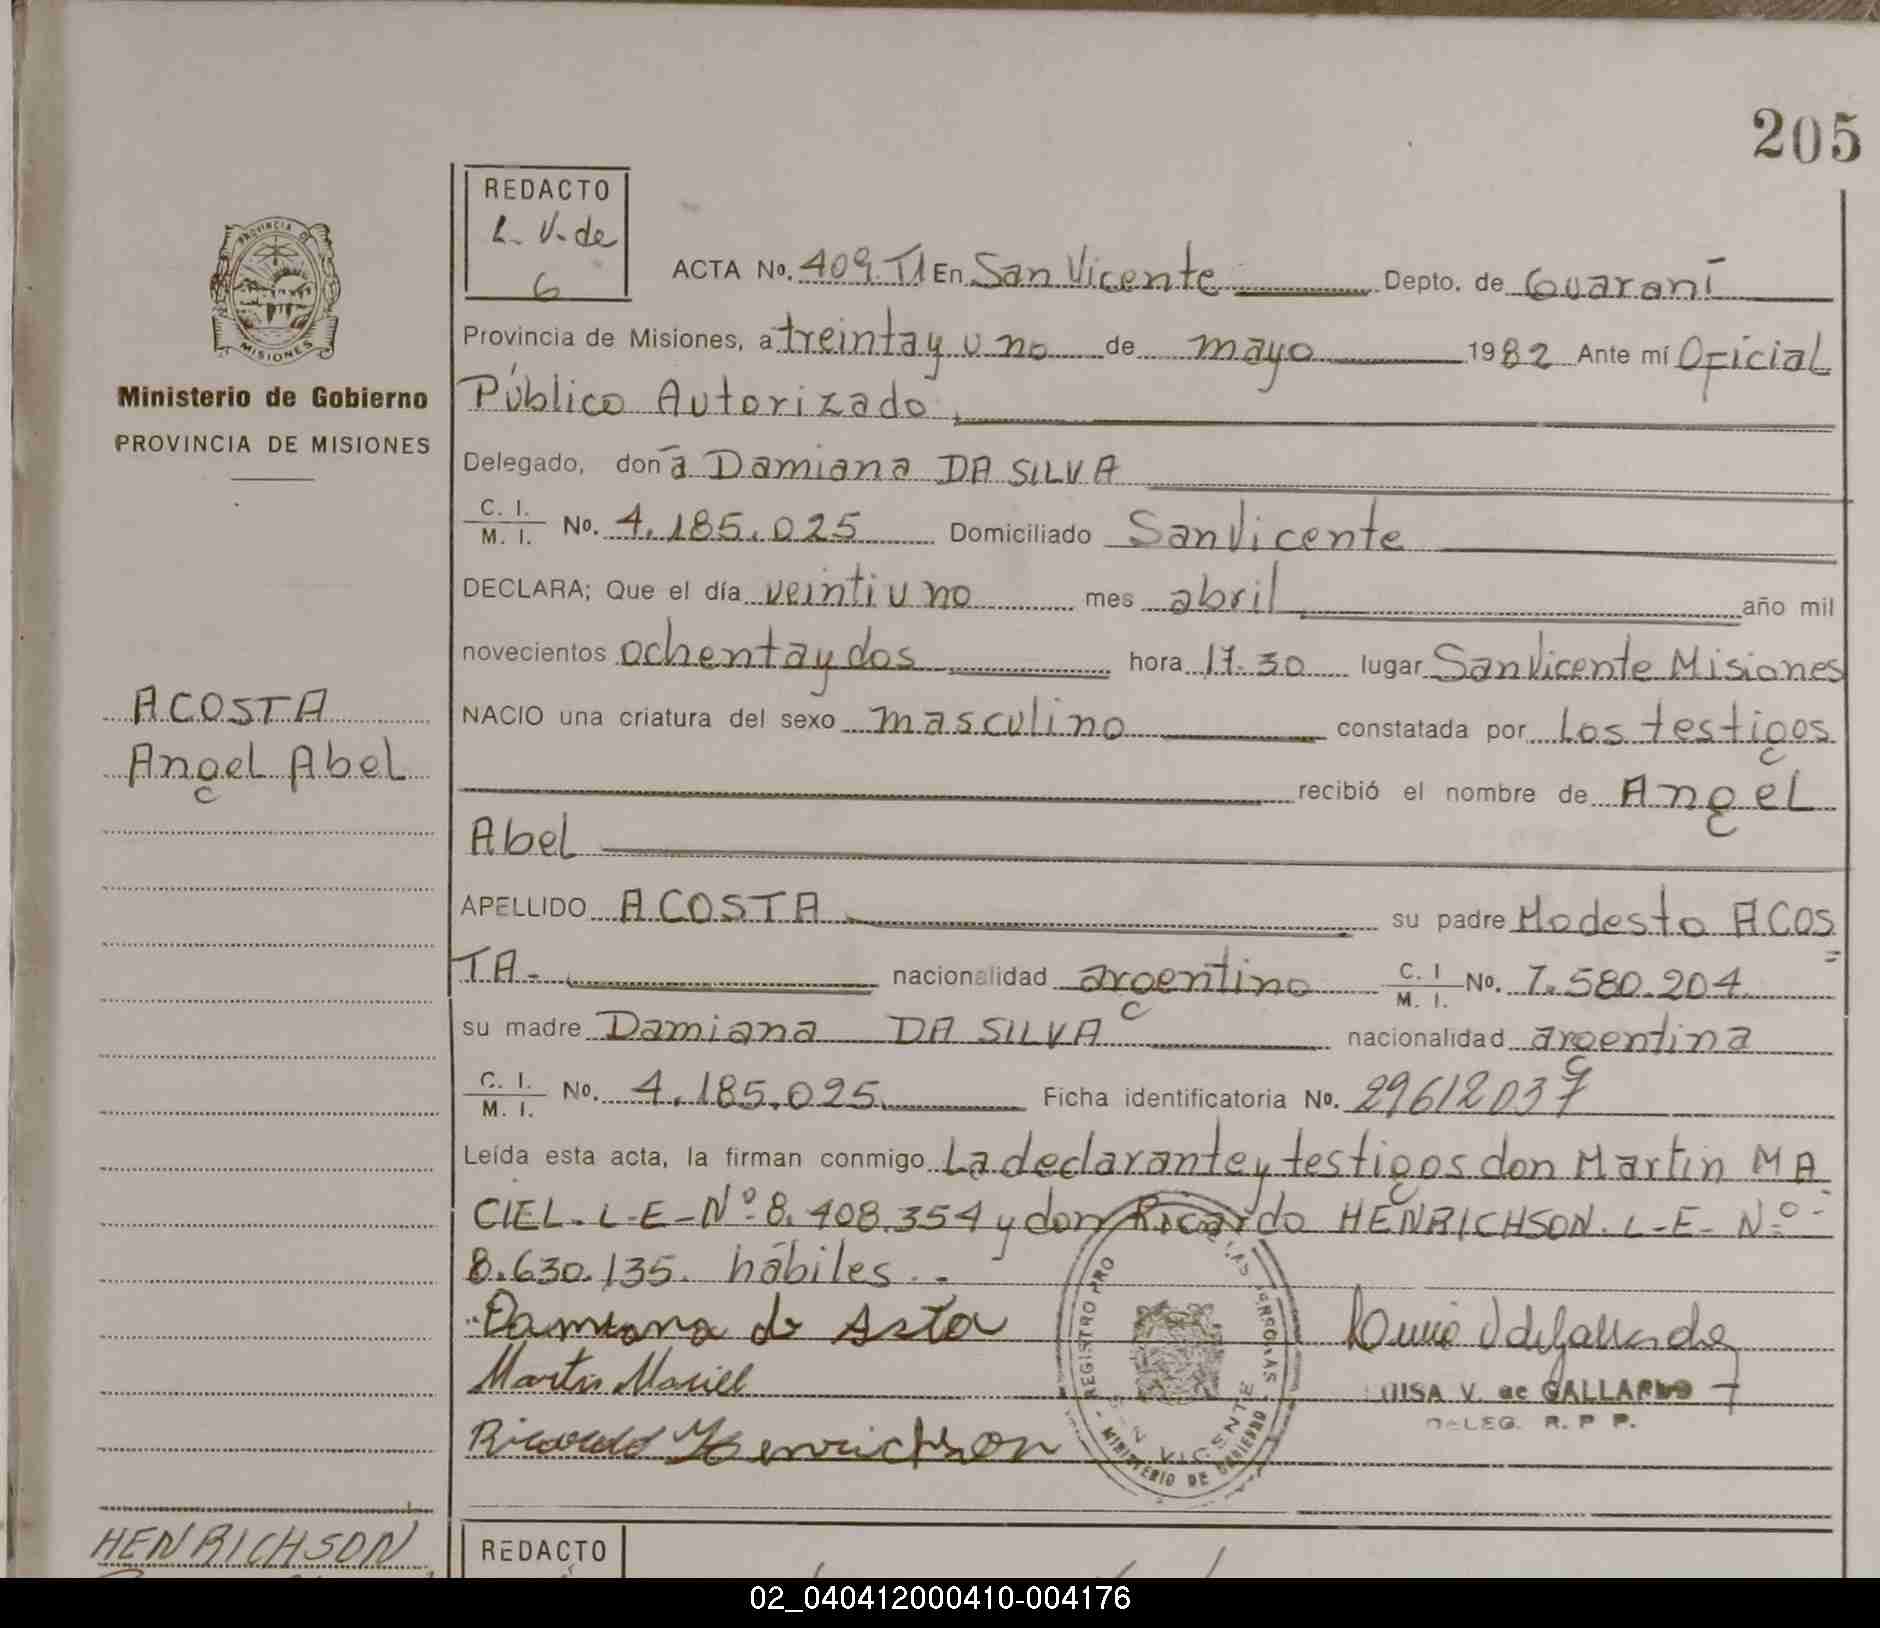 205
REDACTO
L. V. de
G
PROVINCIA DE
MISIONES
Ministerio de Gobierno
PROVINCIA DE MISIONES
ACOSTA
Angel Abel
ACTA No. 409 T1 En San Vicente Depto. de Guaraní
Provincia de Misiones, a treinta y uno de mayo 1982 Ante mí Oficial
Público Autorizado
Delegado, don a Damiana DA SILVA
C. I. M. I. No. 4.185.025 Domiciliado San Vicente
DECLARA; Que el día veintiuno mes abril año mil
novecientos ochenta y dos hora 17.30 lugar San Vicente Misiones
NACIO una criatura del sexo masculino constatada por Los testigos
recibió el nombre de Angel
Abel
APELLIDO ACOSTA su padre Modesto ACOS
TA- nacionalidad argentino C. I M. I. No. 7.580.204
su madre Damiana DA SILVA nacionalidad argentina
C. I. M. I. No. 4.185.025. Ficha identificatoria No. 29612037
Leída esta acta, la firman conmigo La declarante y testigos don Martin MA
CIEL. L-E-Nº 8.408.354 y don Ricardo HENRICHSON. L-E- Nº-
8.630.135. hábiles..
Damiana de
Martin Maciel
Ricardo Henrichson
REGISTRO PRO
SAN VICENTE
MINISTERIO DE GOBIERNO
LUISA V. de GALLARDO
DELEG. R. P P.
HENRICHSON
REDACTO
02_040412000410-004176